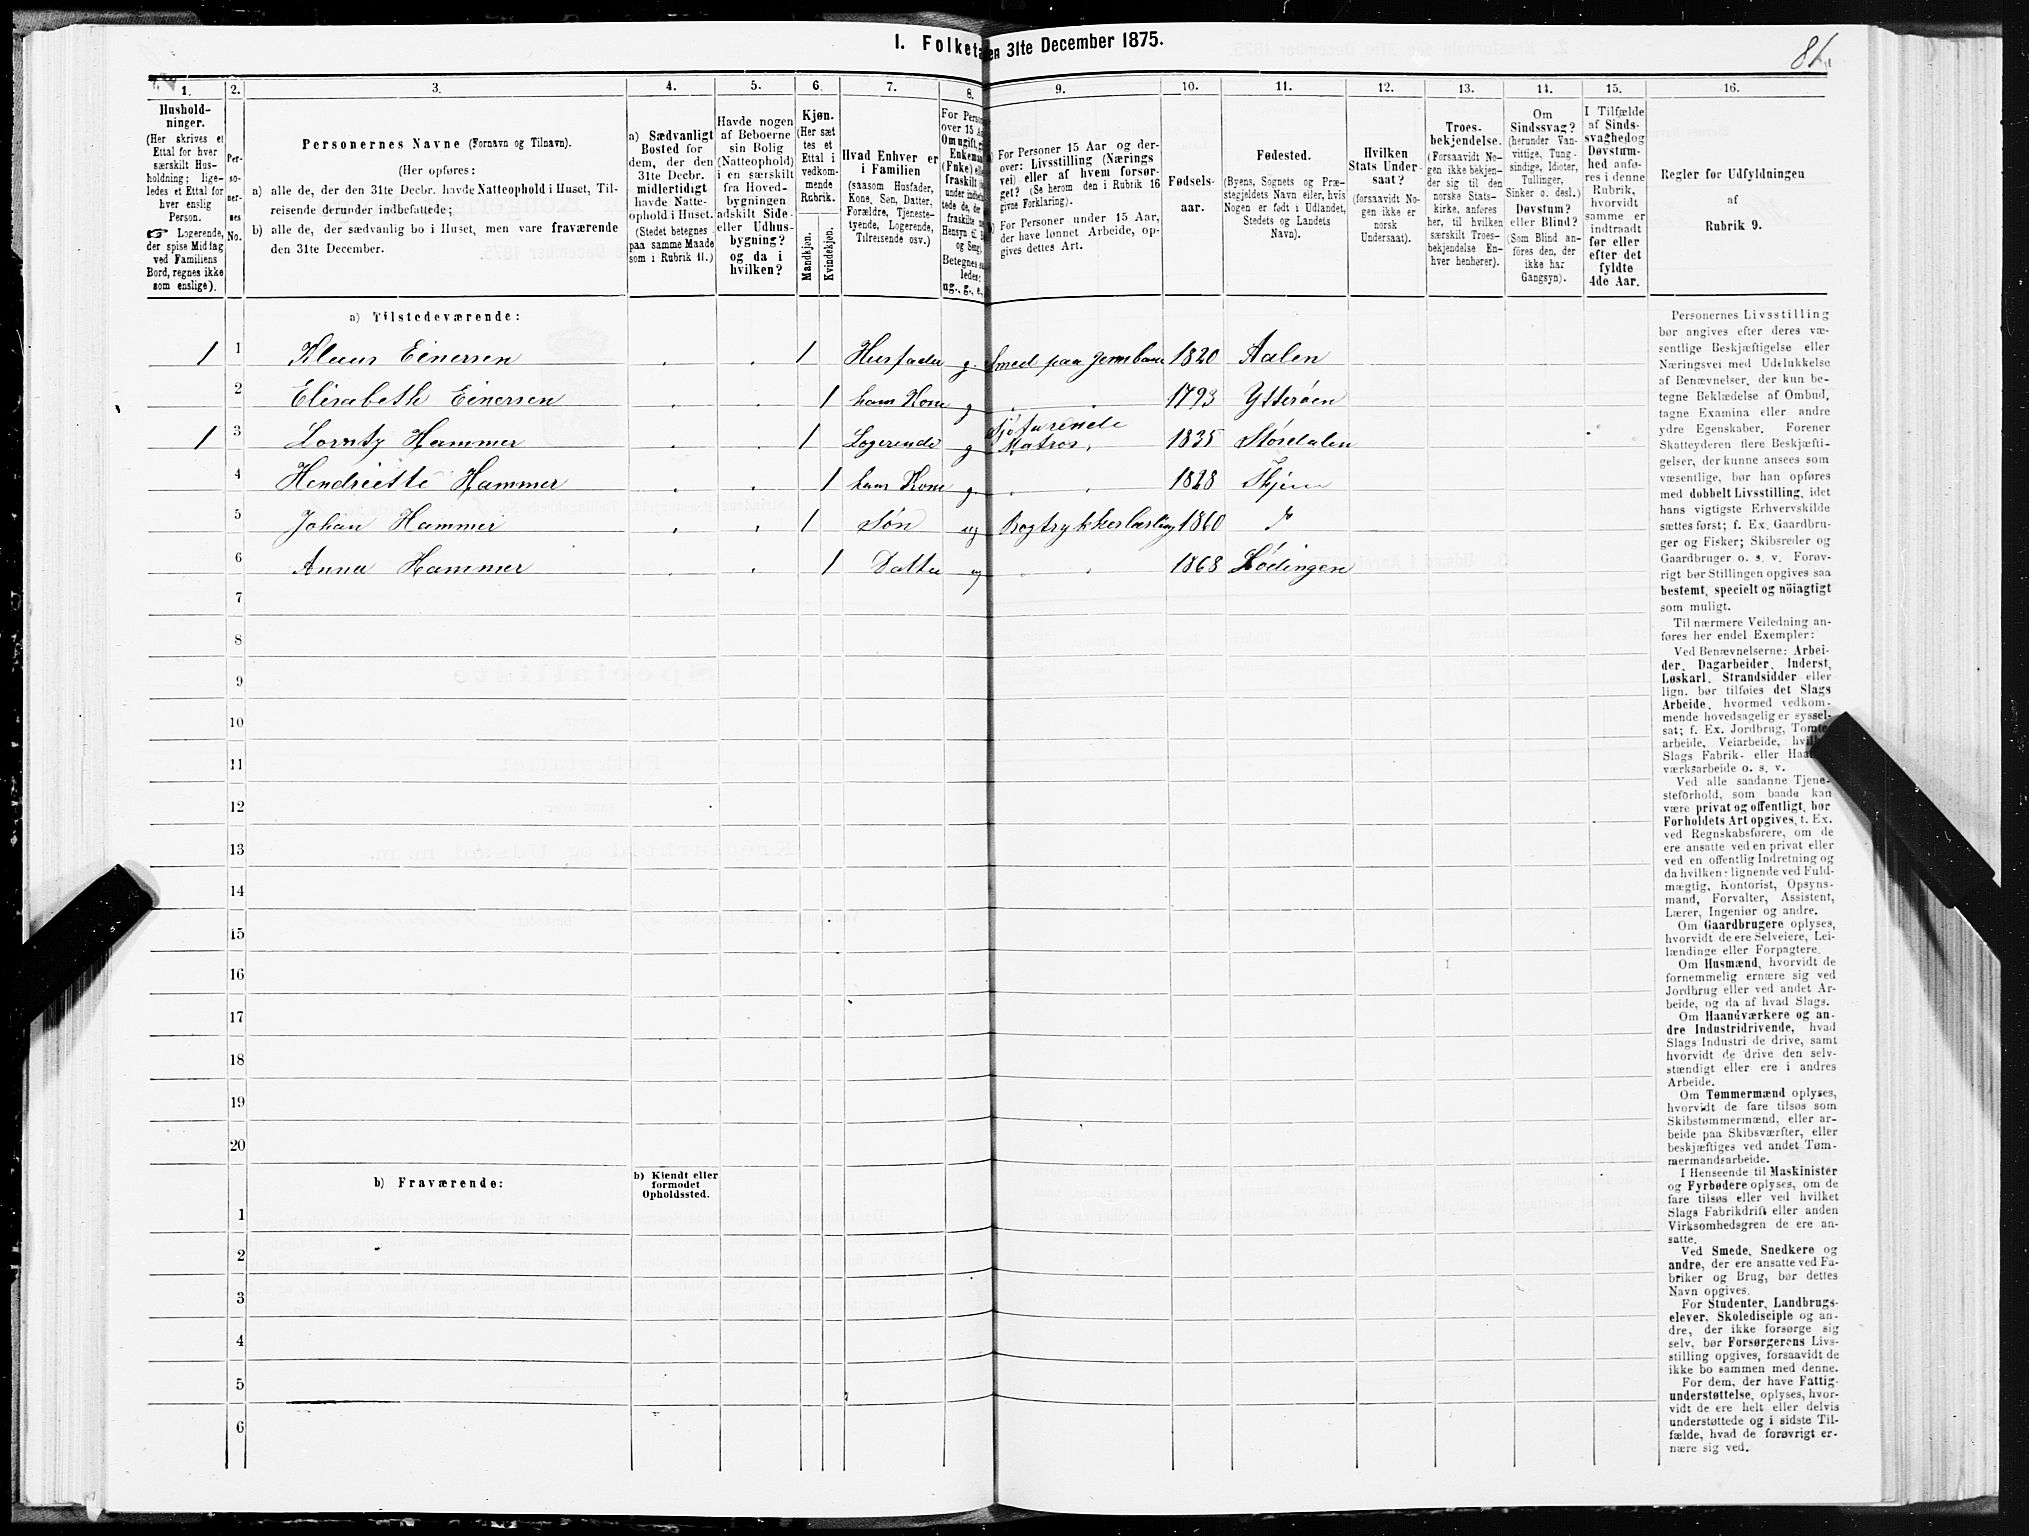 I. Folketa en 31te December 1875.
1. 2. 3. 4. 5. 6. 7. 8. 9. 10. 11. 12. 13. 14. 15. 16.
Hushold-
ninger.
(Her skrives et
Ettal for hver
særskilt Hus-
holdning; lige-
ledes et Ettal for
hver enslig
Person.
☞ Logerende,
der spise Middag
ved Familiens
Bord, regnes ikke
som enslige).
Per-
so-
ner-
nes
No.
Personernes Navne (Fornavn og Tilnavn).
(Her opføres:
a) alle de, der den 31te Decbr. havde Natteophold i Huset, Til-
reisende derunder indbefattede;
b) alle de, der sædvanlig bo i Huset, men vare fraværende
den 31te December.
a) Sædvanligt
Bosted for
dem, der den
31te Decbr.
midlertidigt
havde Natte-
ophold i Huset.
(Stedet betegnes
paa samme Maade
som i Rubrik 11.)
Havde nogen
af Beboerne
sin Bolig
(Natteophold)
i en særskilt
fra Hoved-
bygningen
adskilt Side-
eller Udhus-
bygning?
og da i
hvilken?
Kjøn.
(Her sæt
tes et
Ettal i
vedkom-
mende
Rubrik.
Mandkjøn.
Kvindekjøn.
Hvad Enhver er
i Familien
(saasom Husfader,
Kone, Søn, Datter,
Forældre, Tjeneste-
tyende, Logerende,
Tilreisende osv.)
For Person
over 15 Aa
Om ugift, g
Enkeman
(Fnke) el
fraskilt
under indbe
tede de,
fraskilte
Hensyn til
og Seng
Betegnes
ledes:
ug., g., e.,
For Personer 15 Aar og der-
over: Livsstilling (Nærings
vei) eller af hvem forsør-
get? (Se herom den i Rubrik 16
givne Forklaring).
For Personer under 15 Aar,
der have lønnet Arbeide, op-
gives dettes Art.
Fødsels-
aar.
Fødested.
(Byens, Sognets og Præ-
stegjeldets Navn eller, hvis
Nogen er født i Udlandet,
Stedets og Landets
Navn).
Hvilken
Stats Under-
saat?
(forsaavidt No-
gen ikke er
norsk
Undersaat).
Troes-
bekjendelse.
(Forsaavidt No-
gen ikke bekjen-
der sig til den
norske Stats-
kirke, anføres
her, til hvilken
særskilt Troes-
bekjendelse En-
hver henhører).
Om
Sindssvag?
(herunder Van-
vittige, Tung-
sindige, Idioter,
Tullinger,
Sinker o. desl.)
Døvstum?
eller Blind?
(Som Blind an-
føres den, der
ikke har
Gangsyn).
I Tilfælde
af Sinds-
svaghedog
Døvstum-
hed anfø-
res i denne
Rubrik,
hvorvidt
samme er
indtraadt
før eller
efter det
fyldte
4de Aar.
Regler for Udfyldningen
af
Rubrik 9.
a) Tilstedeværende:
1 1 Klaus Einersen 1 Husfader g. Smed paa Jernbane 1820 Aalen
2 Elisabeth Einersen 1 hans Kone g 1793 Ytterøen
1 3 Hammer 1 Logerende g Sjøfarende Matros, 1835 Størdalen
4 Hendriette Hammer 1 hans Kone g. 1828
5 Johan Hammer 1 Søn ug Bogtrykkerlærling 1860
6 Anna Hammer 1 Datter ug 1868 Lødingen
7
8
9
10
11
12
13
14
15
16
17
18
19
20
b) Fraværende:
b) Kjendt eller
formodet
Opholdssted.
1
2
3
4
5
6
Personernes Livsstilling
bør angives efter deres væ-
sentlige Beskjæftigelse eller
Næringsvei med Udelukkelse
af Benævnelser, der kun be-
tegne Beklædelse af Ombud,
tagne Examina eller andre
ydre Egenskaber. Forener
Skatteyderen flere Beskjæfti-
gelser, der kunne ansees som
væsentlige, bør han opføres
med dobbelt Livsstilling, idet
hans vigtigste Erhvervskilde
sættes først; f. Ex. Gaardbru-
ger og Fisker; Skibsreder og
Gaardbruger o. s. v. Forøv-
rigt bør Stillingen opgives saa
bestemt, specielt og nöiagtigt
som muligt.
Til nærmere Veiledning an-
føres her endel Exempler:
Ved Benævnelserne: Arbei-
der, Dagarbeider, Inderst,
Løskarl, Strandsidder eller
lign. bør tilføies det Slags
Arbeide, hvormed vedkom-
mende hovedsagelig er syssel-
sat; f. Ex. Jordbrug, Tomte-
arbeide, Veiarbeide, hvil
Slags Fabrik- eller Haa
værksarbeide o. s. v.
Ved alle saadanne Tjene-
steforhold, som baade kan
være privat og offentligt, bør
Forholdets Art opgives, t. Ex.
ved Regnskabsførere, om de
ere ansatte ved en privat eller
ved en offentlig Indretning og
da hvilken: lignende ved Fuld-
mægtig, Kontorist, Opsyns-
mand, Forvalter, Assistent,
Lærer, Ingeniør og andre.
Om Gaardbrugere oplyses,
hvorvidt de ere Selveiere, Lei-
lændinge eller Forpagtere.
Om Husmænd, hvorvidt de
fornemmelig ernære sig ved
Jordbrug eller ved andet Ar-
beide, og da af hvad Slags.
Om Haandværkere og an-
dre Industridrivende, hvad
Slags Industri de drive, samt
hvorvidt de drive den selv-
stændigt eller ere i andres
Arbeide.
Om Tømmermænd oplyses,
hvorvidt de fare tilsøs som
Skibstømmermænd, eller ar-
beide paa Skibsværfter, eller
beskjæftiges ved andet Tøm-
mermandsarbeide.
I Henseende til Maskinister
og Fyrbødere oplyses, om de
fare tilsøs eller ved hvilket
Slags Fabrikdrift eller anden
Virksomhedsgren de ere an-
satte.
Ved Smede, Snedkere og
andre, der ere ansatte ved Fa-
briker og Brug, bør dettes
Navn opgives.
For Studenter, Landbrugs-
elever, Skoledisciple og an-
dre, der ikke forsørge sig
selv, bør Forsørgerens Livs-
stilling opgives, forsaavidt de
ikke bo sammen med denne.
For dem, der have Fattig-
understøttelse, oplyses, hvor-
vidt de ere helt eller delvis
understøttede og i sidste Til-
fælde, hvad de forøvrigt er-
nære sig ved.